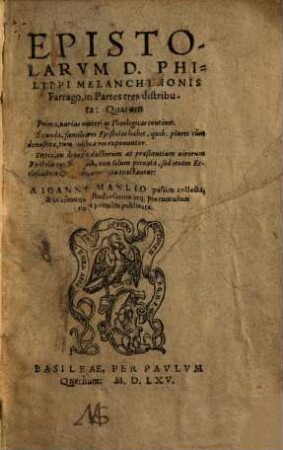 EPISTO-
LARVM D. PHI-
LIPPI MELANCHTHONIS
Farrago, in Partes tres distribu-
ta: Quarum
Prima, varias materias Theologicas continet.
Secunda, familiares Epistolas habet, quib. plures tùm
domesticæ, tum publicæ res exponuntur.
Tertia, doctorum ac præstantium uirorum
Epistolas non solùm priuata, sed etiam Ec-
clesiastica tractantur:
A IOANNE MANLIO passim collecta,
&
primùm publicata.
BASILEAE, PER PAVLVM
Quecum. M. D. LXV.